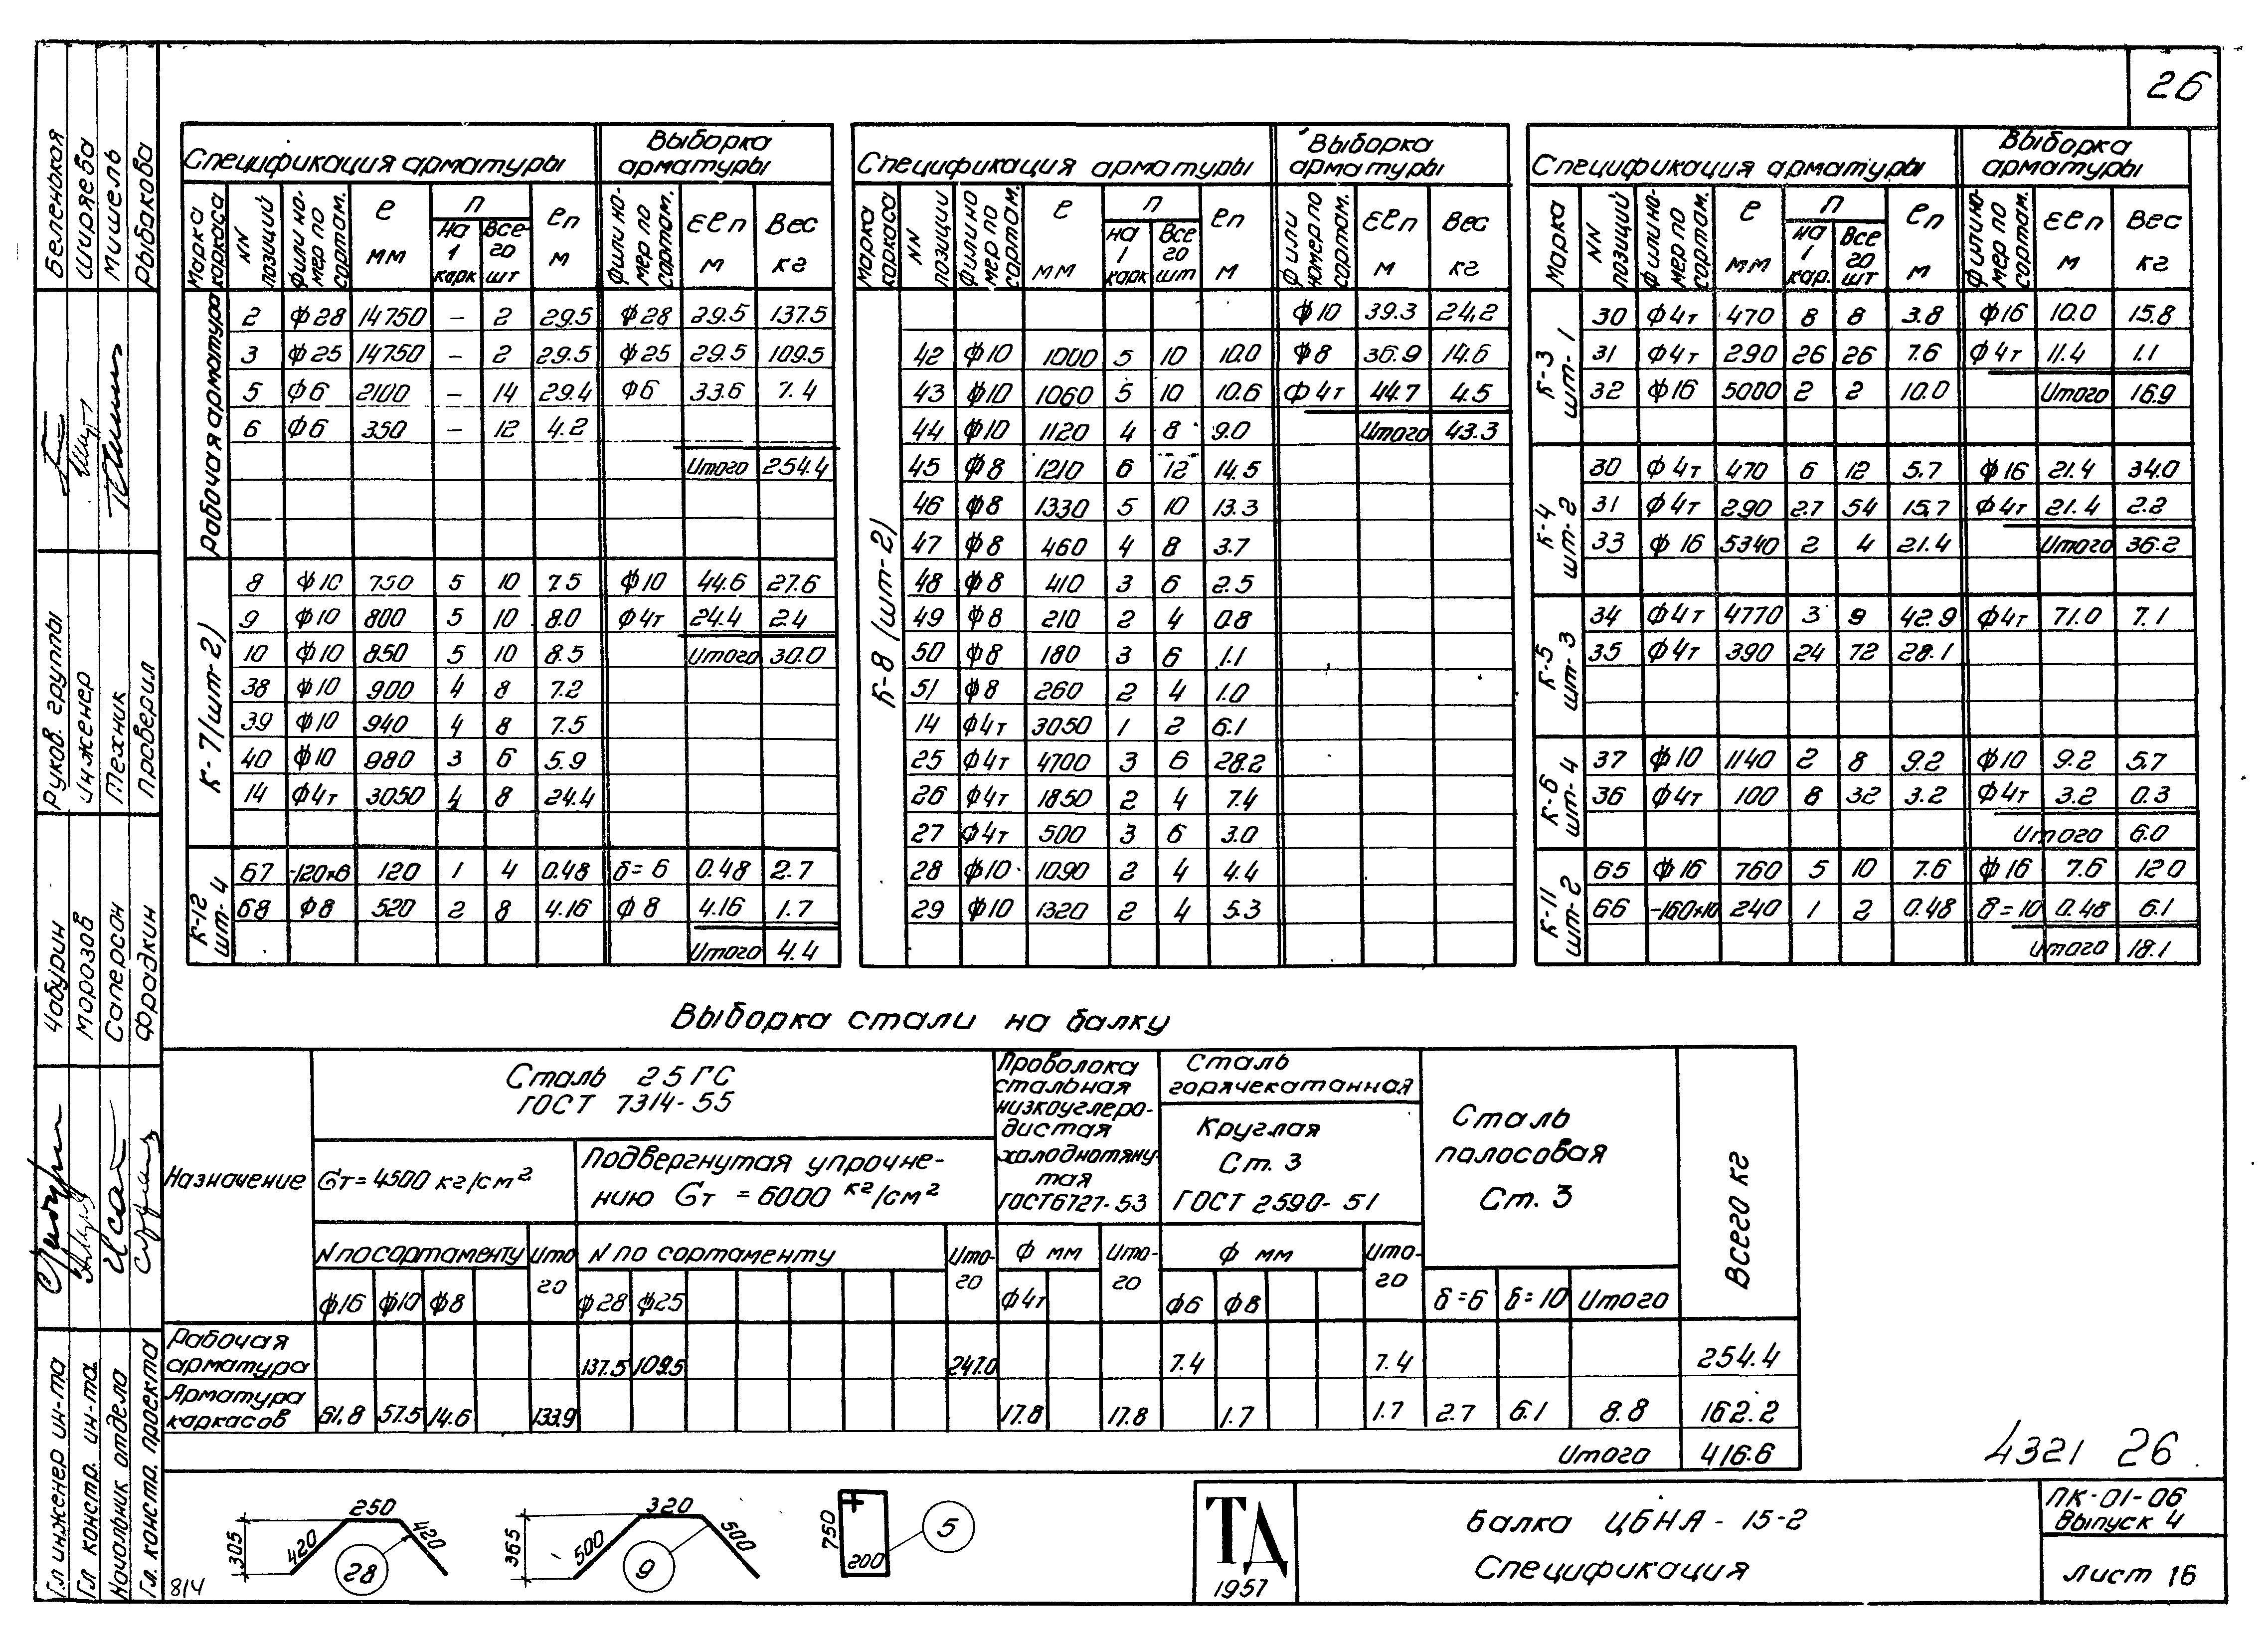 26
Спецификация арматуры
Выборка арматуры
Марка каркаса
NN позиций
Ф или номер по сортам.
ℓ мм
n
На 1 карк
Всего шт
ℓn м
Ф или номер по сортам.
Σℓn м
Вес кг
Рабочая арматура
2 ф28 14750 – 2 29.5 ф28 29.5 137.5
3 ф25 14750 – 2 29.5 ф25 29.5 109.5
5 ф6 2100 – 14 29.4 ф6 33.6 7.4
6 ф6 350 – 12 4.2
Итого 254.4
К-7 (шт-2)
8 ф10 750 5 10 7.5 ф10 44.6 27.6
9 ф10 800 5 10 8.0 ф4т 24.4 2.4
10 ф10 850 5 10 8.5 Итого 30.0
38 ф10 900 4 8 7.2
39 ф10 940 4 8 7.5
40 ф10 980 3 6 5.9
14 ф4т 3050 4 8 24.4
К-12 шт-4
67 -120×6 120 1 4 0.48 δ=6 0.48 2.7
68 ф8 520 2 8 4.16 ф8 4.16 1.7
Итого 4.4
Спецификация арматуры
Выборка арматуры
Марка каркаса
NN позиции
Ф или номер по сортам.
ℓ мм
n
На 1 карк
Всего шт
ℓn м
Ф или номер по сортам.
Σℓn м
Вес кг
К-8 (шт-2)
ф10 39.3 24,2
42 ф10 1000 5 10 10.0 ф8 36.9 14.6
43 ф10 1060 5 10 10.6 ф4т 44.7 4.5
44 ф10 1120 4 8 9.0 Итого 43.3
45 ф8 1210 6 12 14.5
46 ф8 1330 5 10 13.3
47 ф8 460 4 8 3.7
48 ф8 410 3 6 2.5
49 ф8 210 2 4 0.8
50 ф8 180 3 6 1.1
51 ф8 260 2 4 1.0
14 ф4т 3050 1 2 6.1
25 ф4т 4700 3 6 28.2
26 ф4т 1850 2 4 7.4
27 ф4т 500 3 6 3.0
28 ф10 1090 2 4 4.4
29 ф10 1320 2 4 5.3
Спецификация арматуры
Выборка арматуры
Марка
NN позиций
Ф или номер по сортам.
ℓ мм
n
На 1 кар.
Всего шт
ℓn м
Ф или номер по сортам.
Σℓn м
Вес кг
К-3 шт-1
30 ф4т 470 8 8 3.8 ф16 10.0 15.8
31 ф4т 290 26 26 7.6 ф4т 11.4 1.1
32 ф16 5000 2 2 10.0 Итого 16.9
К-4 шт-2
30 ф4т 470 6 12 5.7 ф16 21.4 34.0
31 ф4т 290 27 54 15,7 ф4т 21.4 2.2
33 ф16 5340 2 4 21.4 Итого 36.2
К-5 шт-3
34 ф4т 4770 3 9 42.9 ф4т 71.0 7.1
35 ф4т 390 24 72 28.1
К-6 шт-4
37 ф10 1140 2 8 9.2 ф10 9.2 5,7
36 ф4т 100 8 32 3.2 ф4т 3.2 0.3
Итого 6.0
К-11 шт-2
65 ф16 760 5 10 7.6 ф16 7.6 12.0
66 -160×10 240 1 2 0.48 δ=10 0.48 6.1
Итого 18.1
Выборка стали на балку
Назначение
Сталь 25ГС
ГОСТ 7314-55
Gт=4500 кг/см²
Подвергнутая упрочне-
нию Gт = 6000 кг/см²
Проволока
стальная
низкоуглеро-
дистая
холоднотяну-
тая
ГОСТ6727-53
Сталь
горячекатанная
Круглая
Ст. 3
ГОСТ 2590-51
Сталь
полосовая
Ст. 3
Всего кг
N по сортаменту
Итого
N по сортаменту
Итого
Ф мм
Итого
Ф мм
Итого
ф16 ф10 ф8 ф28 ф25 ф4т ф6 ф8 δ=6 δ=10 Итого
Рабочая
арматура 137.5 109.5 247.0 7.4 7.4 254.4
Арматура
каркасов 61,8 57.5 14.6 133.9 17.8 17.8 1.7 1.7 2.7 6.1 8.8 162.2
Итого 416.6
4321 26
305 420 250 420 28
365 500 320 500 9
750 200 5
814
ТА
1957
Балка ЦБНА-15-2
Спецификация
ПК-01-06
Выпуск 4
Лист 16
Гл инженер ин-та
Гл констр. ин-та
Начальник отдела
Гл. констр. проекта
Чабурин
Морозов
Саперсон
Фрадкин
Руков. группы
Инженер
Техник
Проверил
Беленькая
Ширяева
Мишель
Рыбакова